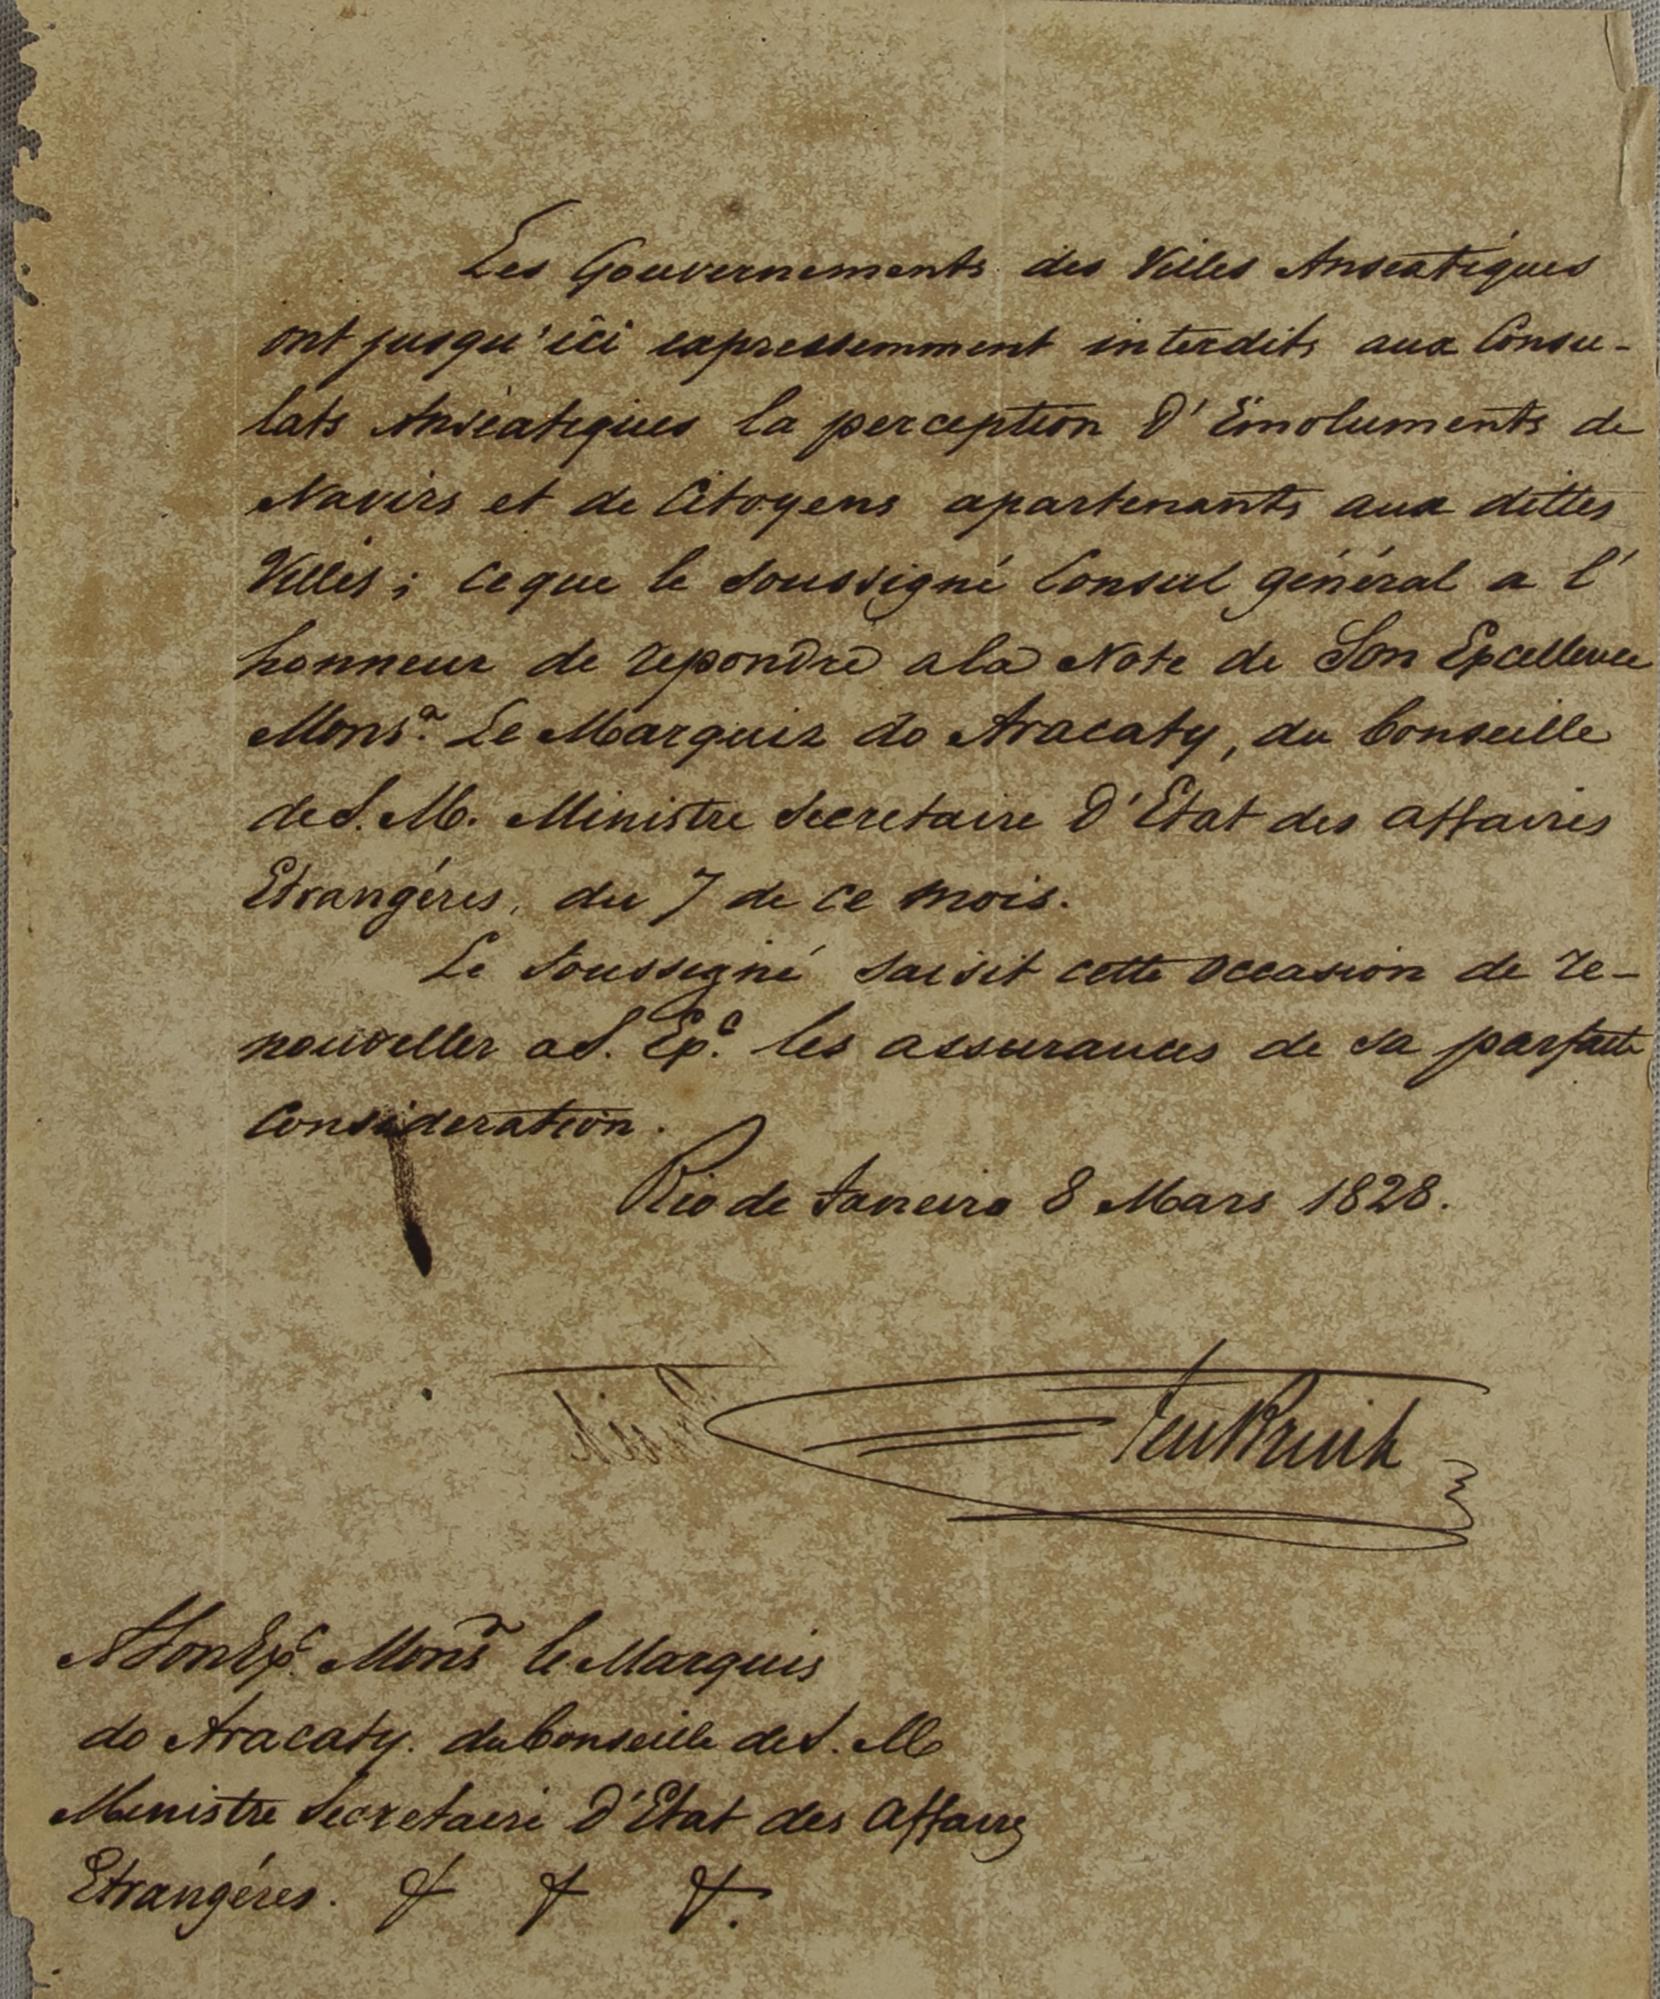 Les Gouvernements des Villes Anseatiques
ont jusqu'ici expressemment interdits aux Consu-
lats Anséatiques la perception d'Emoluments de
Navirs et de Citoyens apartenants aux dittes
Villes; ce que le soussigné Consul général a l'
honneur de repondre a la Note de Son Excellence
Monsr. Le Marquis do Aracaty, du Conseille
de S. M. Ministre Secretaire d'Etat des affaires
Etrangéres, du 7 de ce mois.
Le Soussigné saisit cette occasion de re-
nouveller a S. Exc. les assurances de sa parfaite
Consideration.
Rio de Janeiro 8 Mars 1828.
A Son Exc. Monsr le Marquis
do Aracaty. du Conseille de S. M
Ministre Secretaire d'Etat des affaires
Etrangéres. & & &.